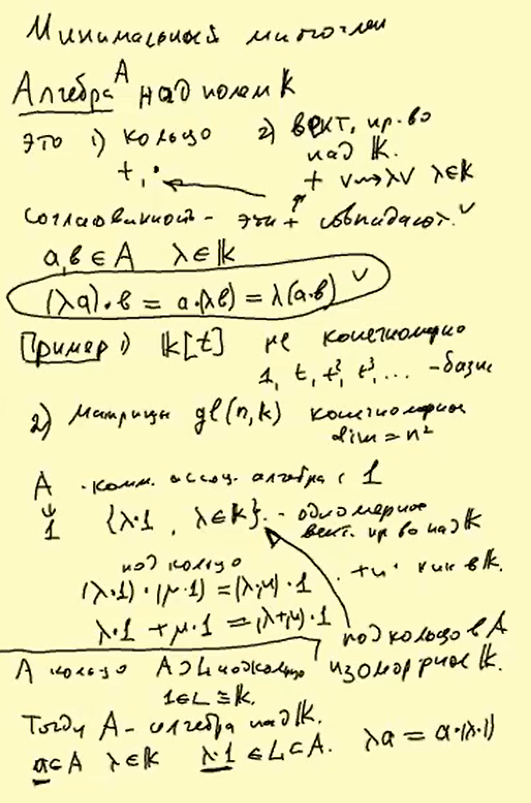 Минимальный многочлен
Алгебра A над полем k
это 1) кольцо 2) вект. пр-во
над 𝕜.
+, · + v⇝λv λ∈k
Согласованность - эти + совпадают.
a,b ∈ A λ∈𝕜
(λa)·b = a·(λb) = λ(a·b)
Пример 1) 𝕜[t] не конечномерно
1, t, t², t³, ... - базис
2) Матрицы gl(n,k) конечномерная
dim = n²
A - комм. ассоц. алгебра с 1
1 {λ·1, λ∈𝕜} - одномерное
вект. пр-во над 𝕜
подкольцо
(λ·1)·(μ·1) = (λμ)·1 + и · как в 𝕜.
λ·1 + μ·1 = (λ+μ)·1
подкольцо в A
изоморфное 𝕜.
A кольцо A⊃L подкольцо
1∈L≅𝕜.
Тогда A - алгебра над 𝕜.
a∈A λ∈𝕜 λ·1 ∈ L⊂A. λa = a·(λ·1)